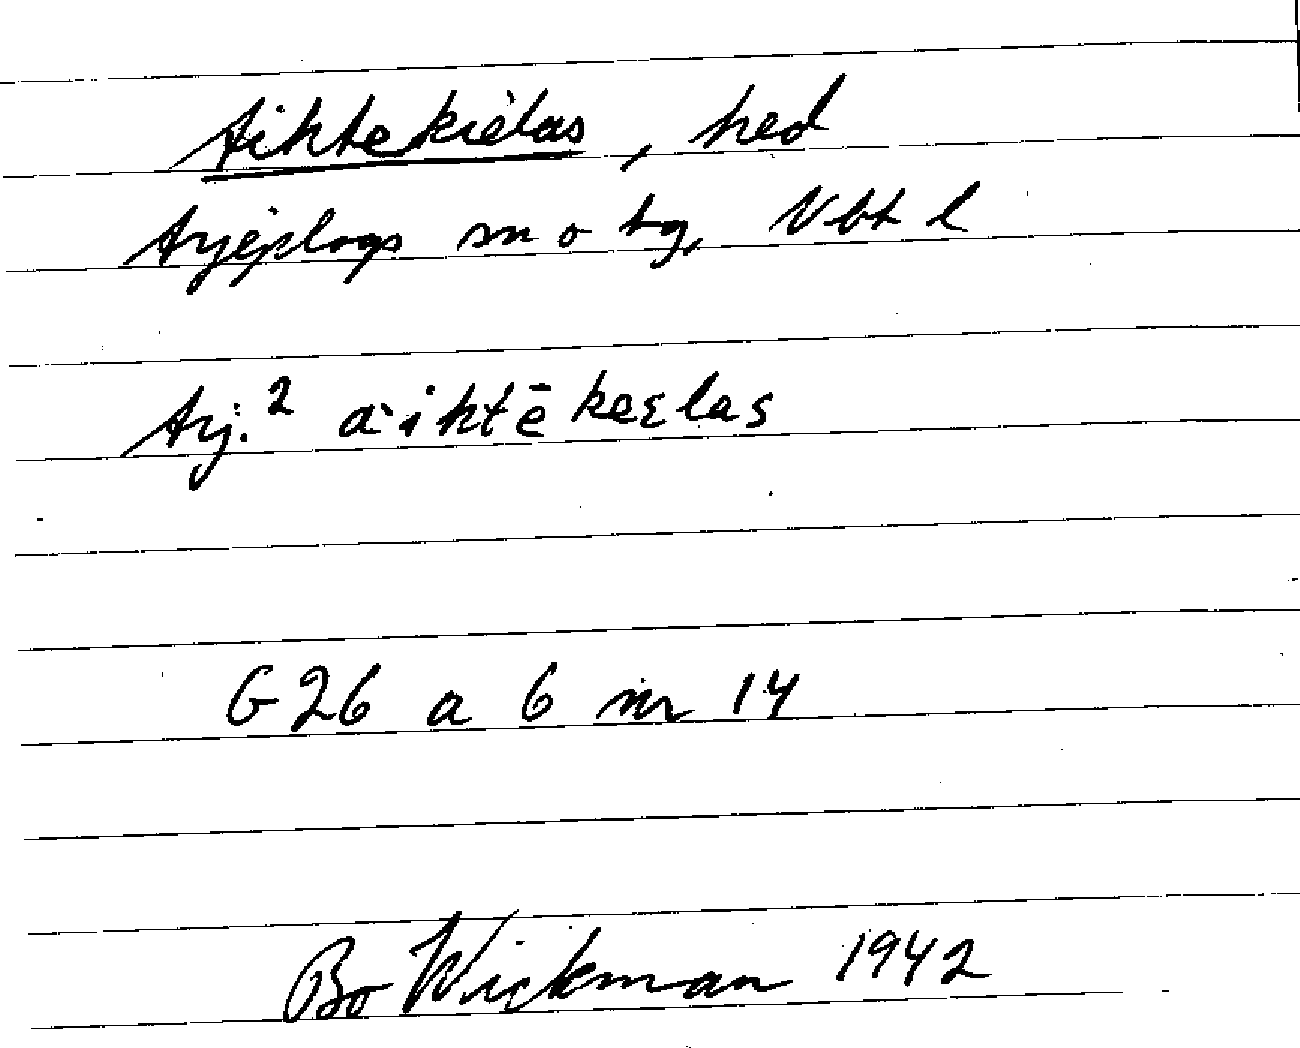 Aiktekielas, hed
Arjeplogs sn o tg, Vbt l
Arj.² ā·iktē keεlas
G 26 a 6 nr 14
Bo Wickman 1942